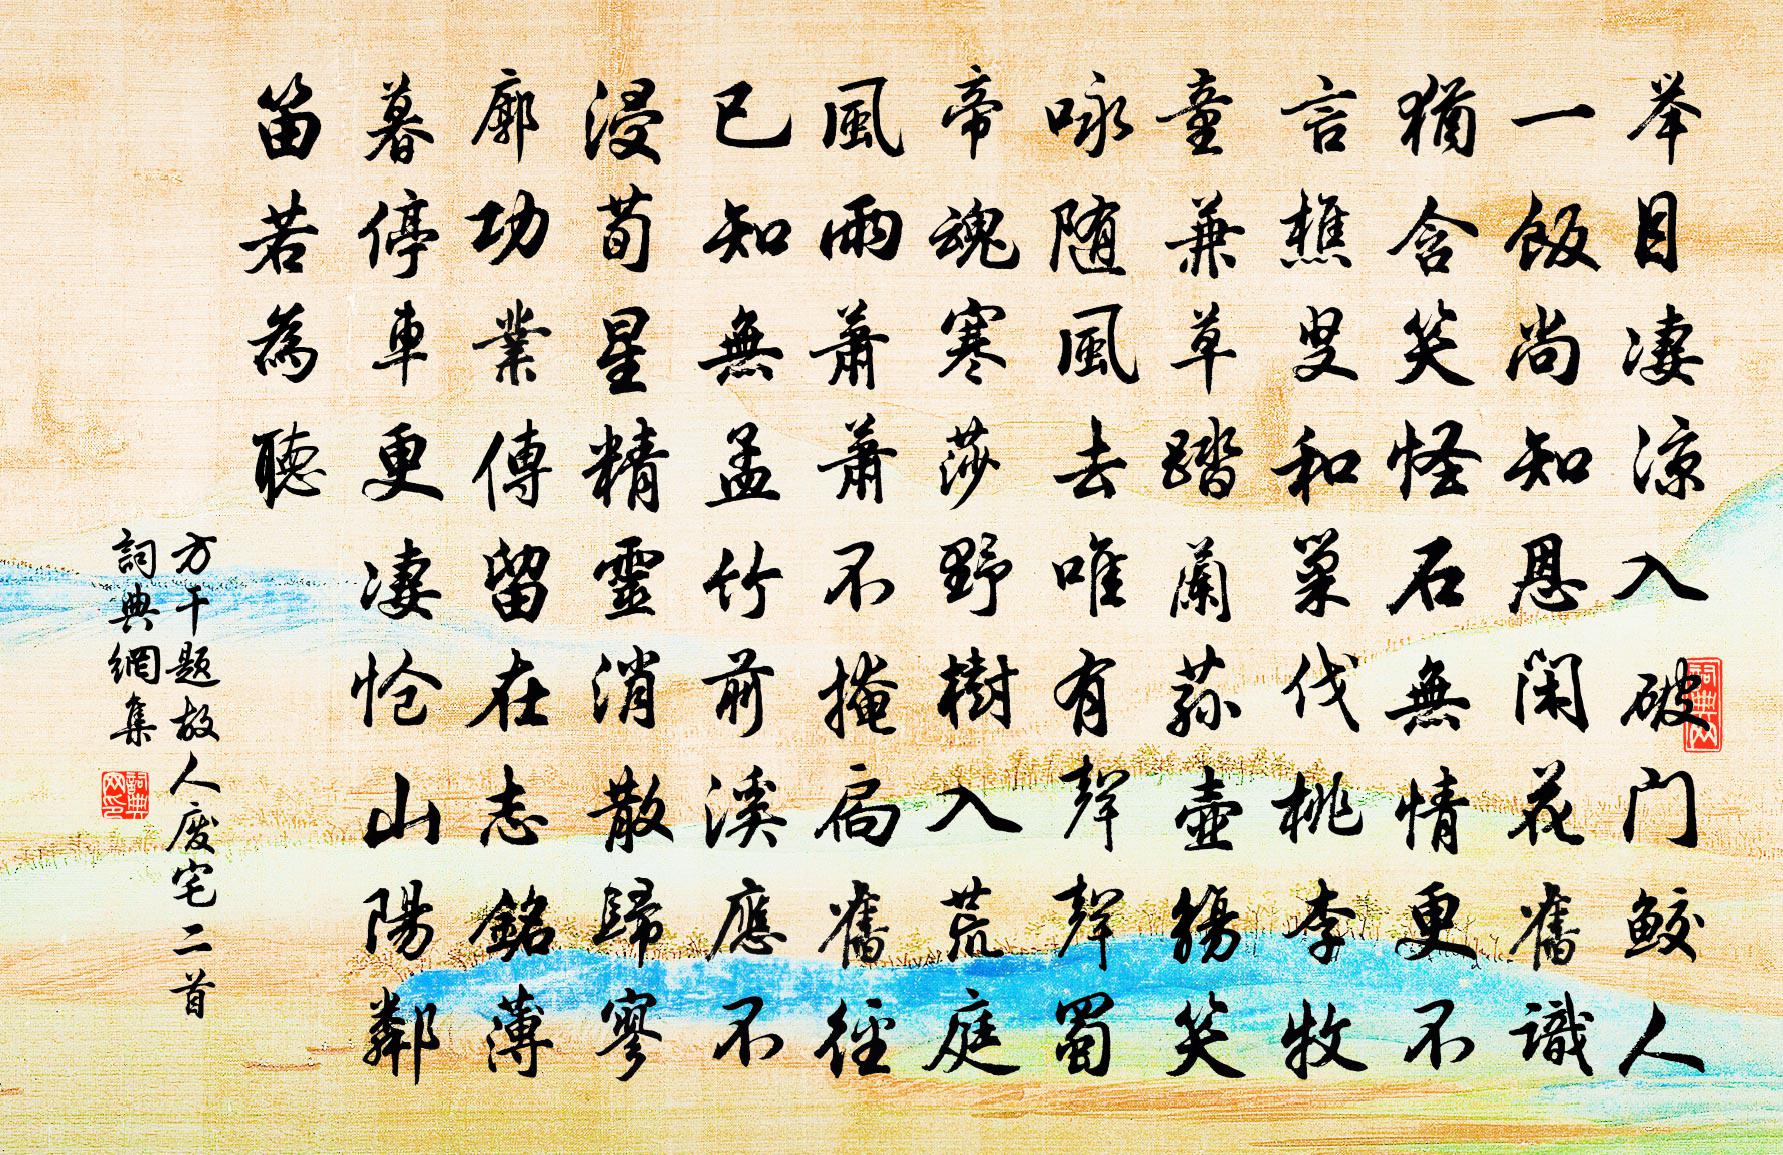 举目凄凉入破门鲛人
一飯尚知恩闲花舊識
猶含笑怪石無情更不
言樵叟和巢伐桃李牧
童兼草踏蘭蓀壺觴笑
咏随風去唯有聲聲蜀
帝魂寒莎野樹入荒庭
風雨蕭蕭不掩扃舊徑
已知無孟竹前溪應不
浸荀星精靈消散歸寥
廓功業傳留在志銘薄
暮停車更凄怆山陽鄰
笛若為聽
方干题故人废宅二首
詞典網集
詞典网
詞典网印